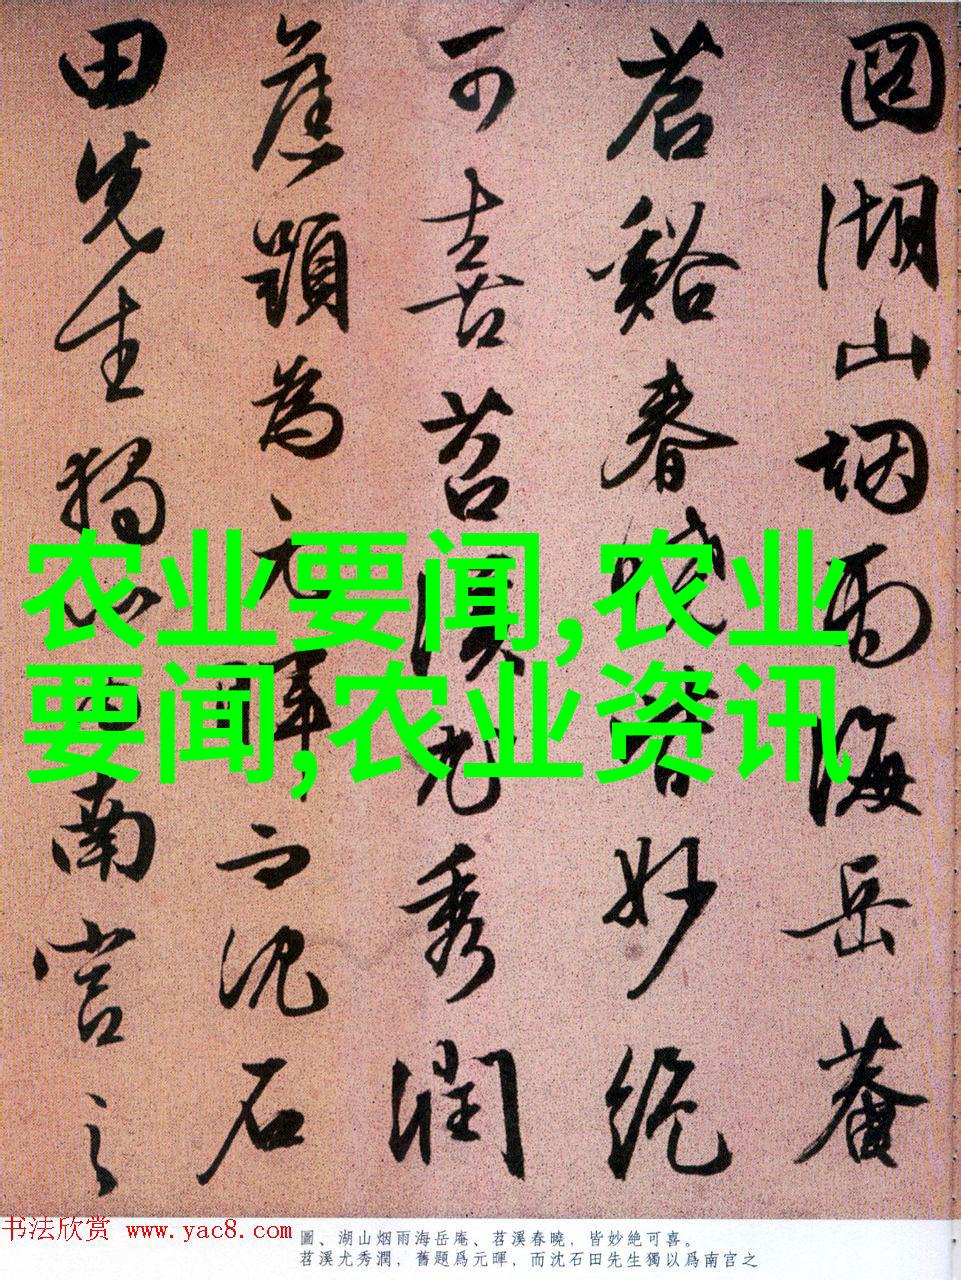 圖湖山烟雨海岳菴
苕谿春曉皆妙絶
可喜苕溪尤秀潤
舊題為元暉而沈石
田先生獨以為南宫之
农业要闻,农业
要闻,农业资讯
书法欣赏 www.yac8.com
圖、湖山烟雨海岳庵、苕溪春曉，皆妙絶可喜。
苕溪尤秀潤，舊題爲元暉，而沈石田先生獨以爲南宫之